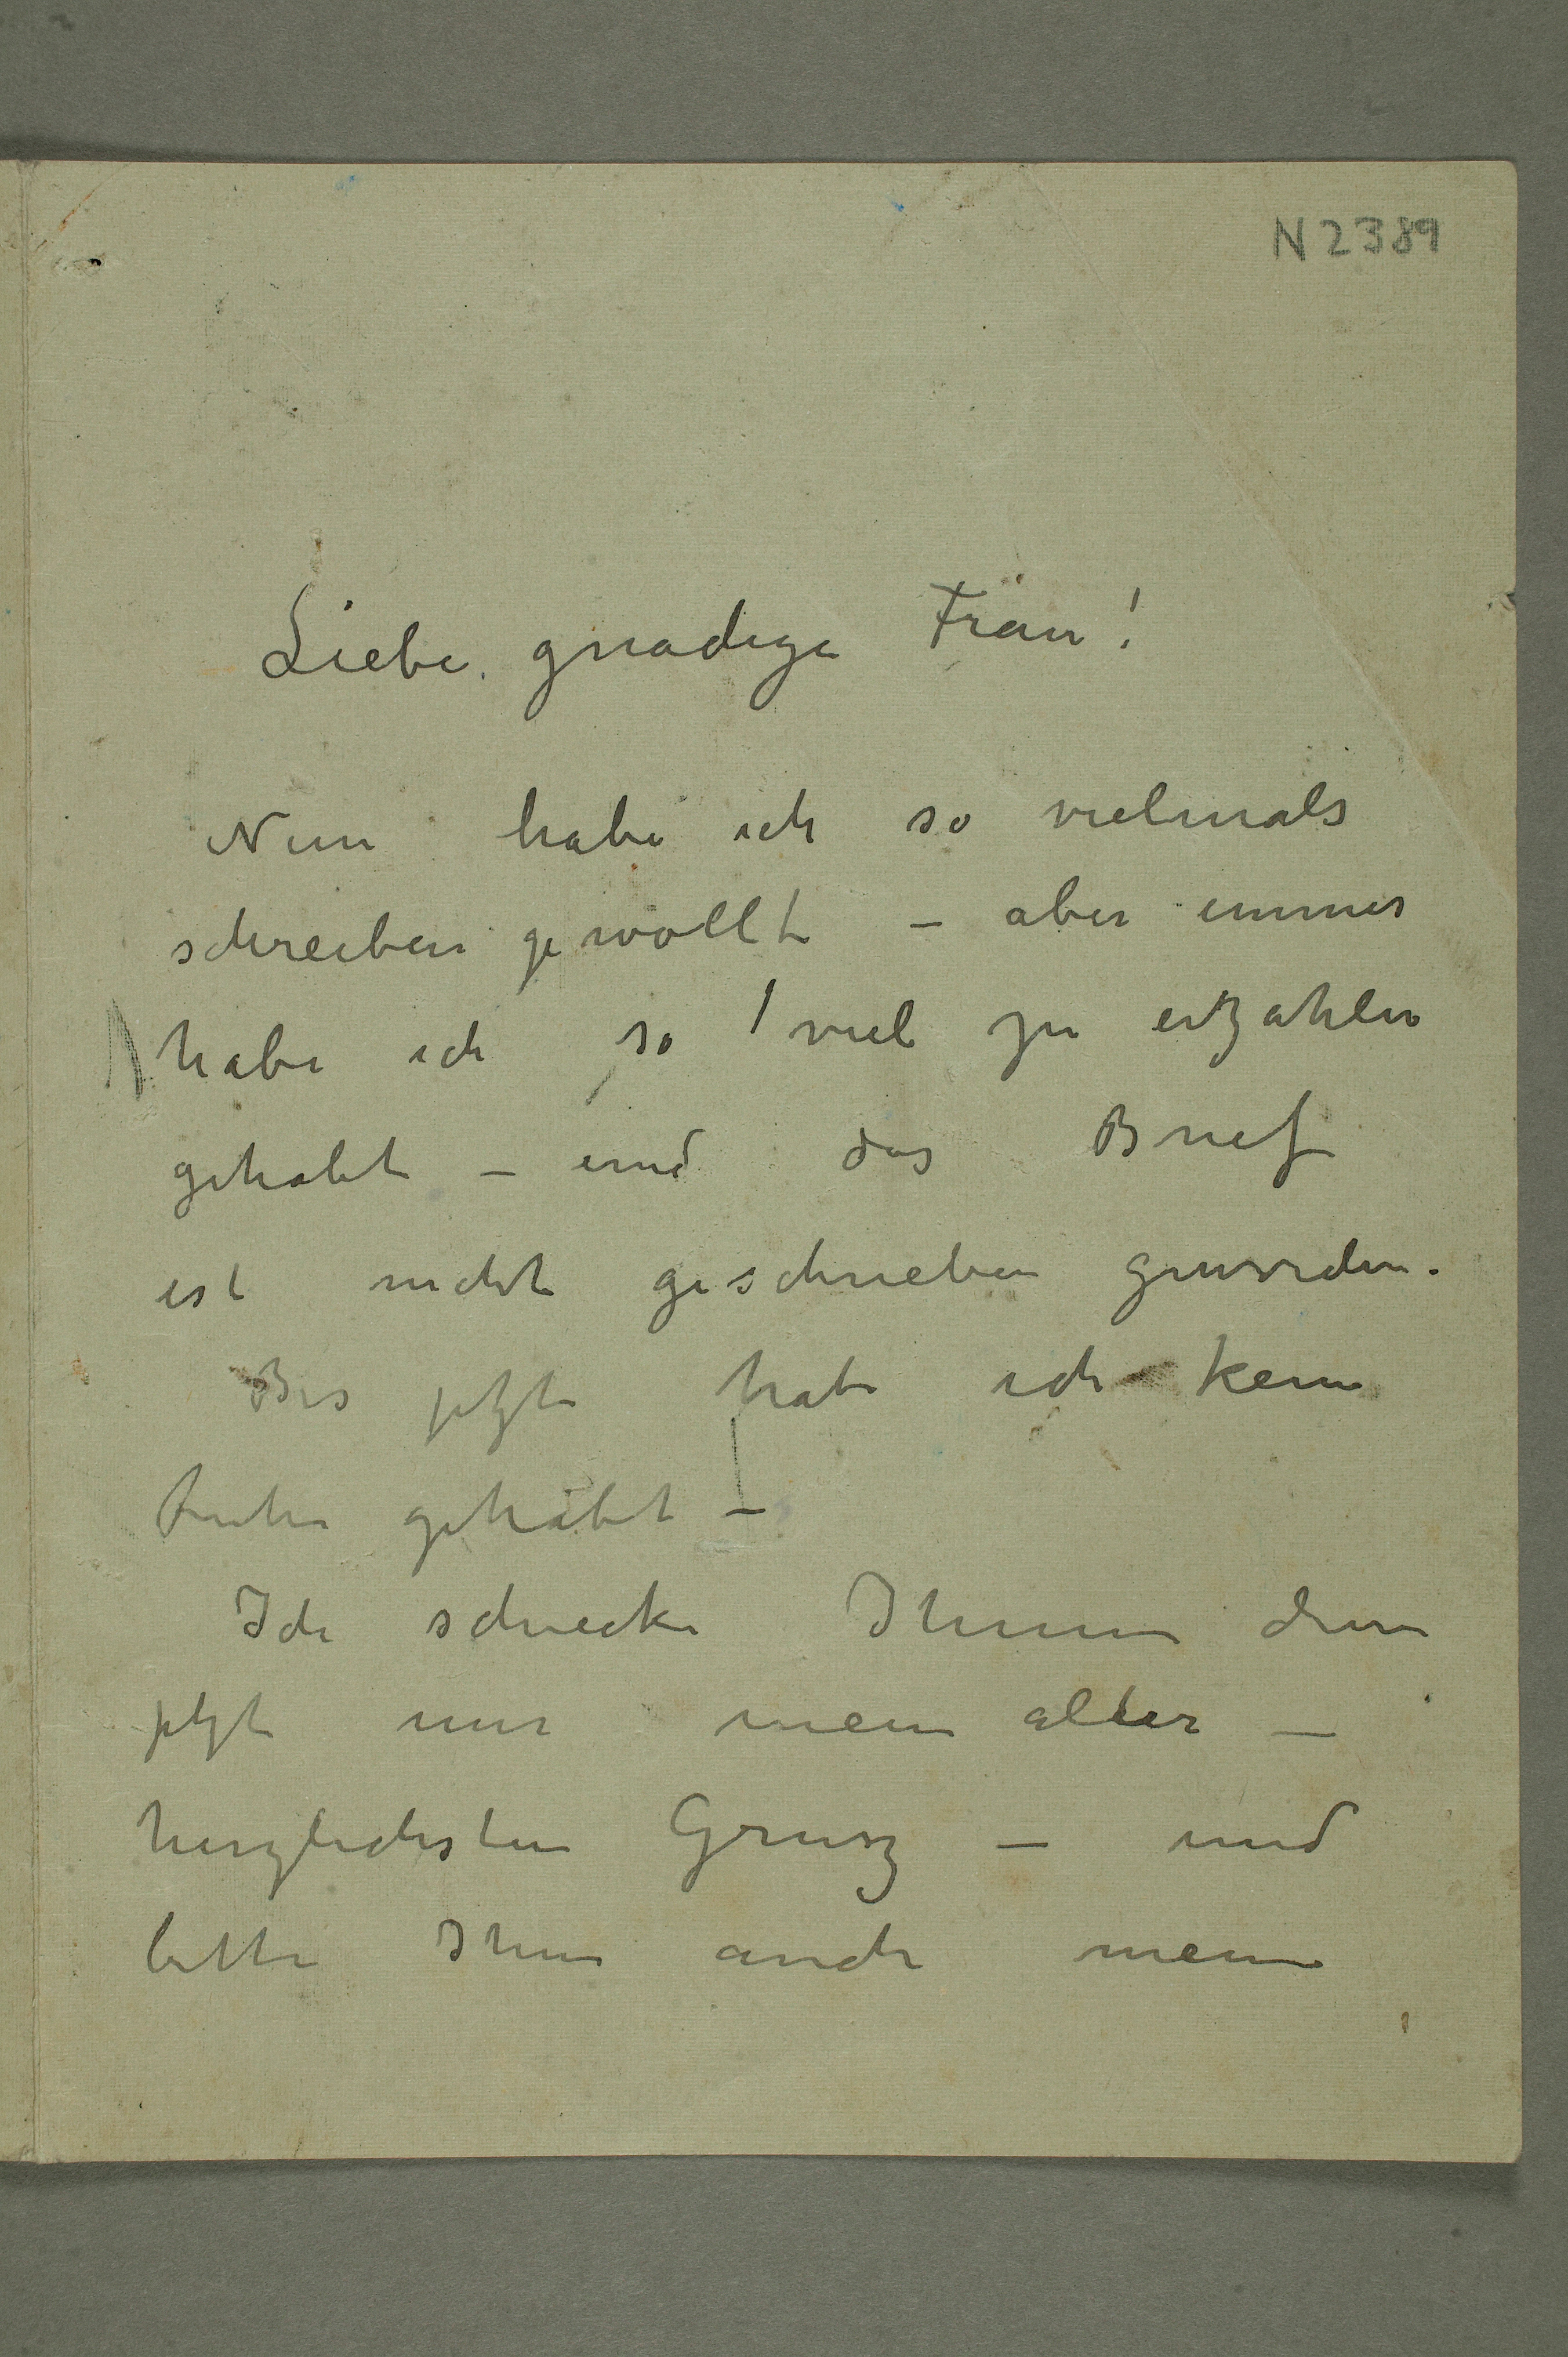 N 2389
Liebe gnadige Frau!
Nun habe ich so vielmals
schreiben gewollt – aber immer
habe ich so viel zu erzahlen
gehabt – und das Brief
ist nicht geschrieben geworden.
Bis jetzt habe ich keine
Ruhe gehabt –
Ich schicke Ihnen denn
jetzt nur mein aller –
herzlichsten Grusz – und
bitte Ihnen auch meine